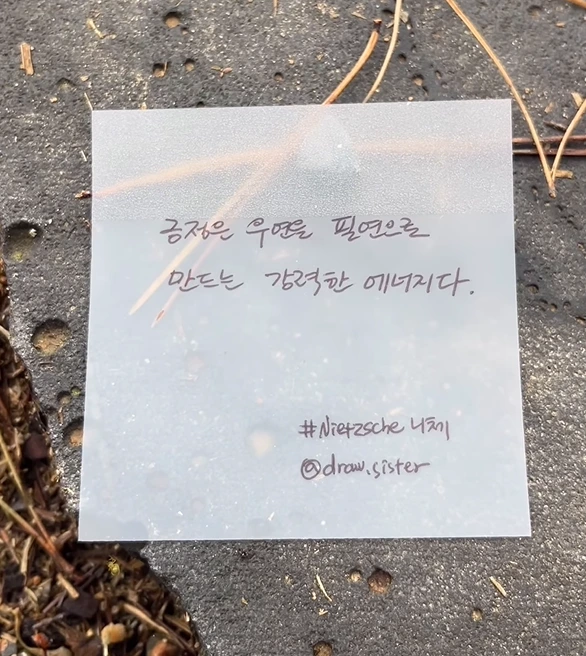 긍정은 우연을 필연으로
만드는 강력한 에너지다.
#Nietzsche 니체
@draw.sister